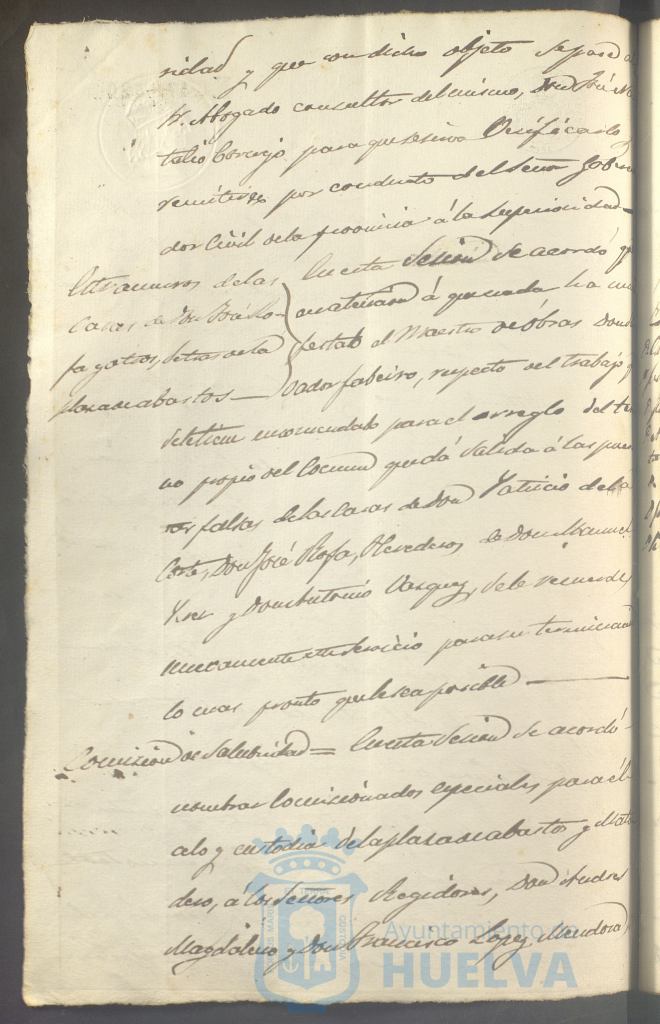 sidad y que con dicho objeto se pase al
Sr. Abogado consultor del mismo, Don José
Cornejo para que se sirva verificarlo y
remitirlo por conducto del Señor Gober
dor Civil de la provincia á la superioridad
En esta Sesion se acordó que
casas de Don José Ro-
en atencion á que nada ha ma
fa y otros, detras de la
festado el Maestro de Obras Don
plaza de abastos
vador Fabeiro, respecto del trabajo q
se le tiene encomendado para el arreglo del te
no propio del Comun que dá salida á las puer
tas falsas de las Casas de Don Patricio de la
Corte, Don José Rofa, Herederos de Don Manuel
y Don Antonio Vazquez, se le recuerde
nuevamente este servicio para su terminacion
lo mas pronto que le sea posible
Comision de Salubridad = En esta Sesion se acordó
nombrar Comisionados especiales para el
alo y custodia de la plaza de abastos y Mata
dero, á los Señores Regidores, Don Andres
Magdaleno y Don Francisco Lopez Mendoza
Ayuntamiento de
HUELVA